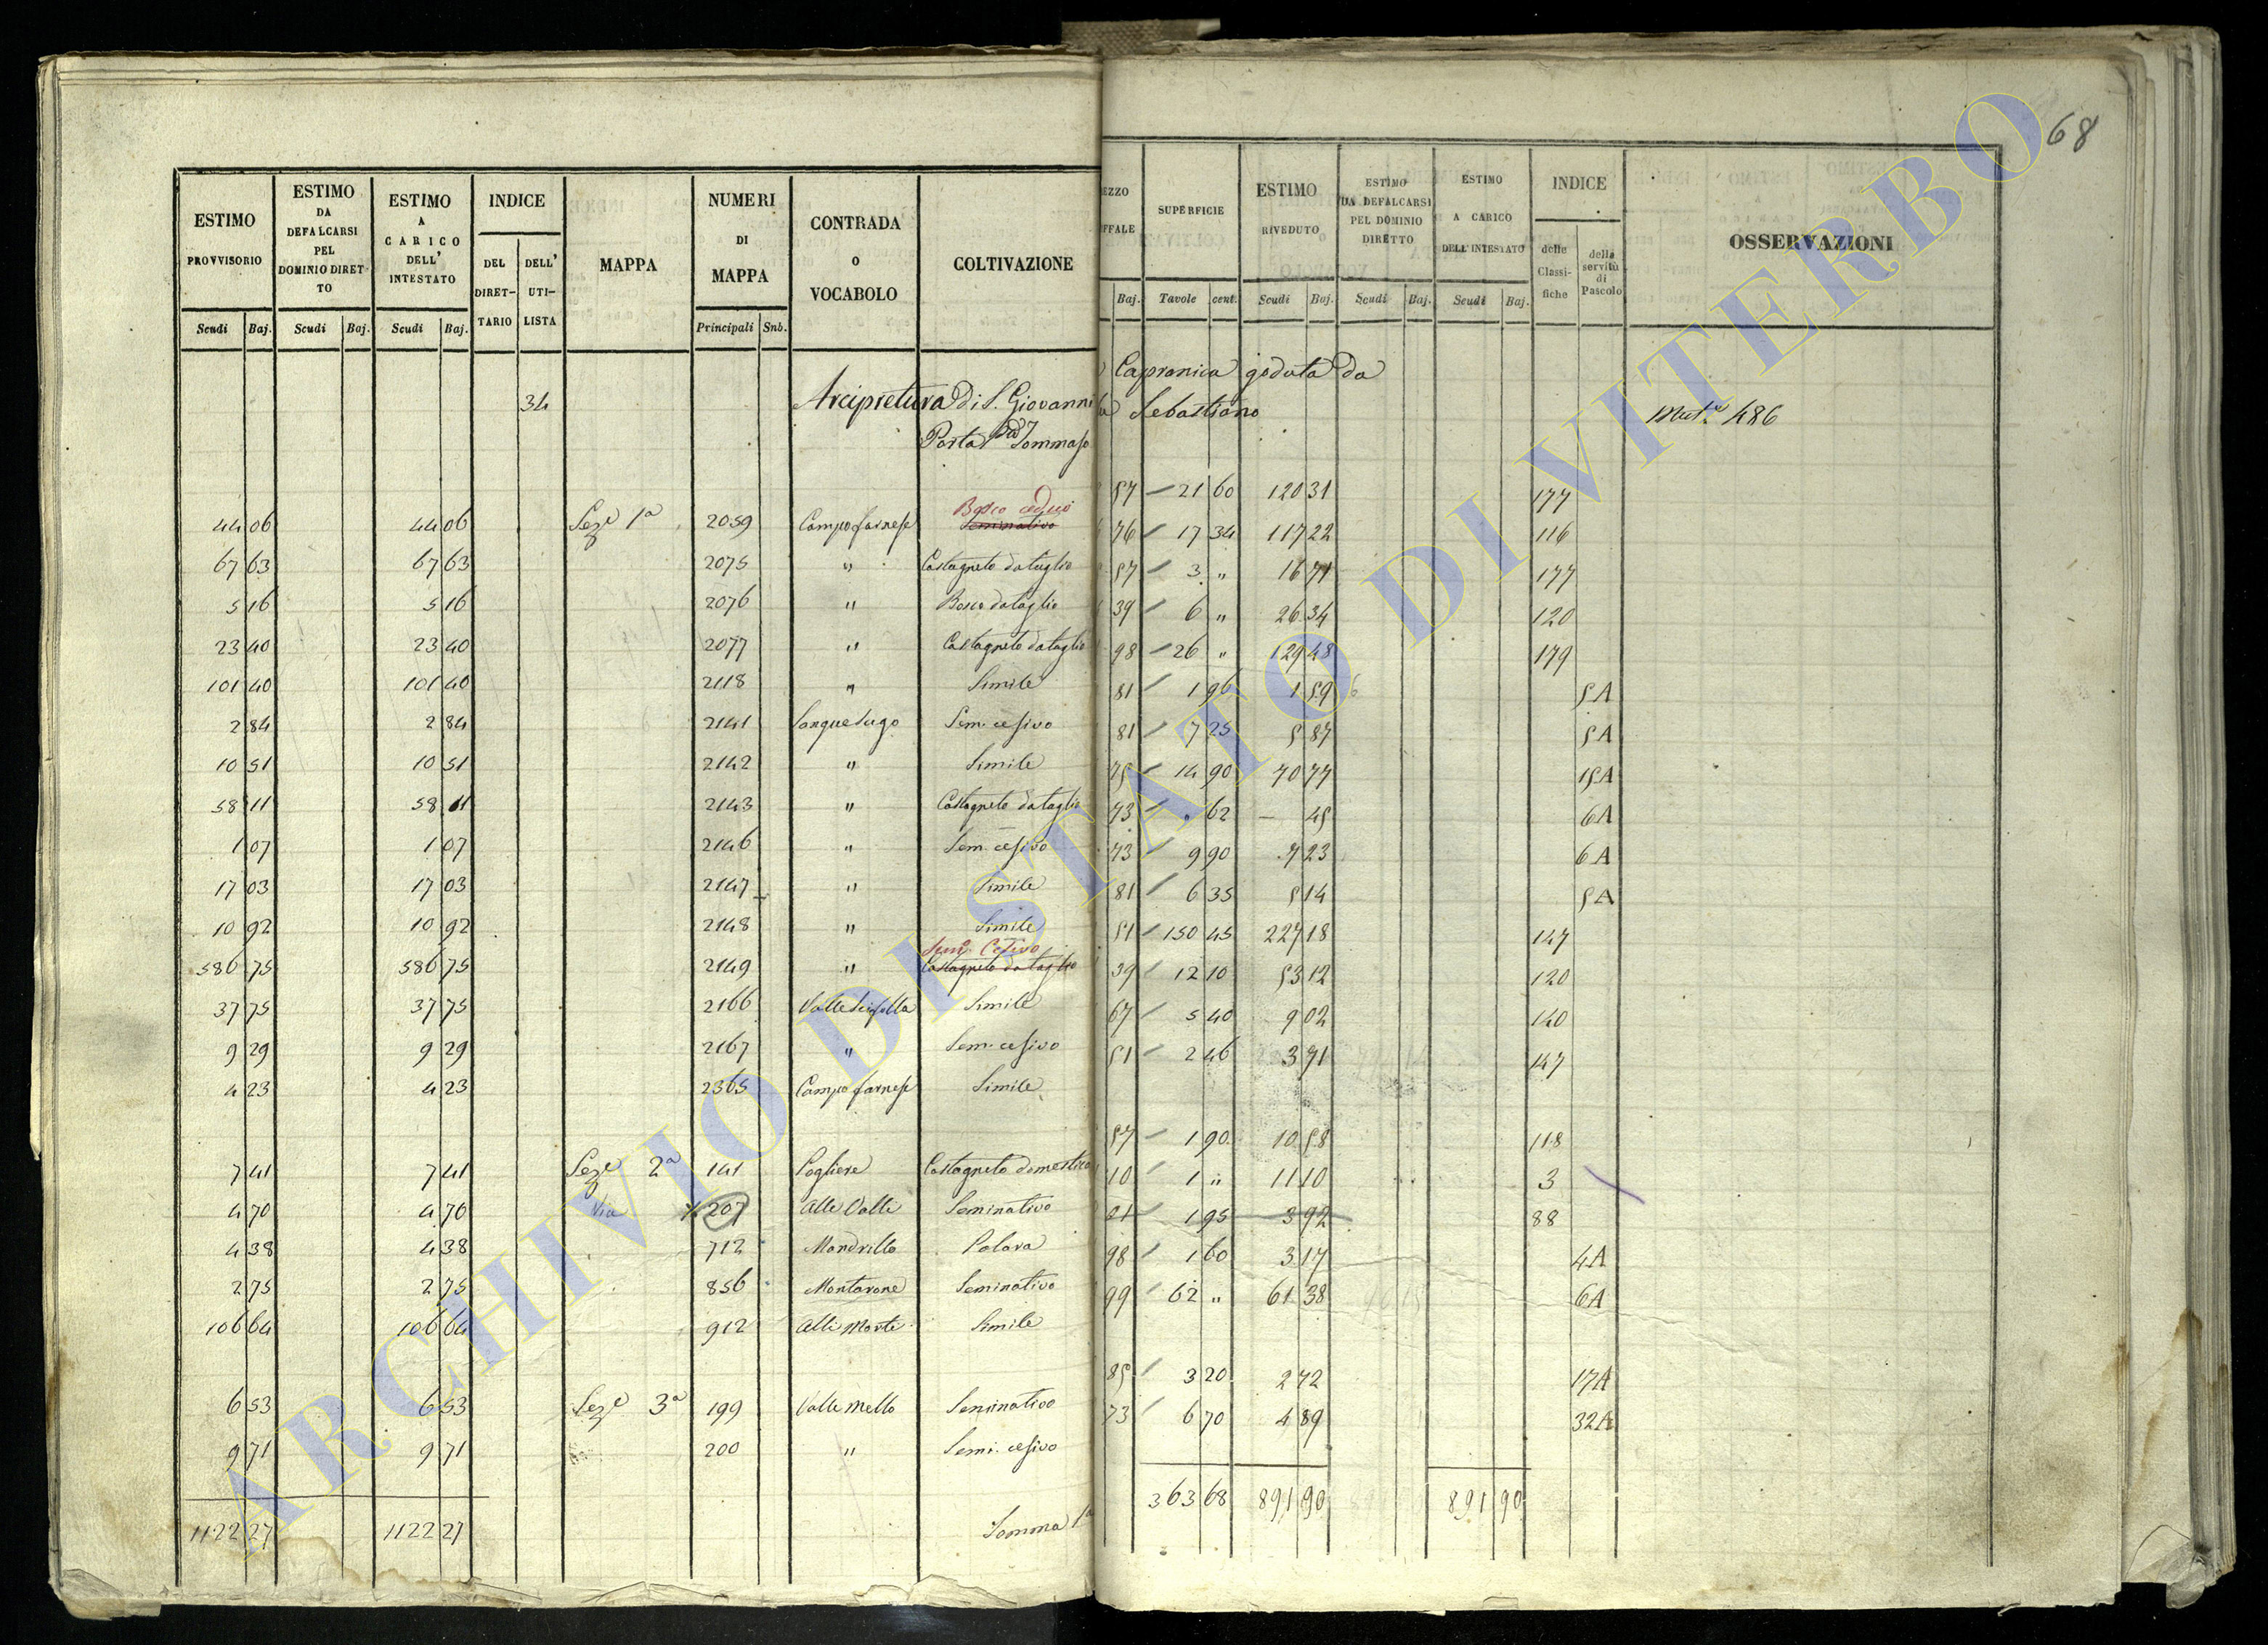 68
ESTIMO PROVVISORIO
ESTIMO DA DEFALCARSI PEL DOMINIO DIRETTO
ESTIMO A CARICO DELL' INTESTATO
INDICE
DEL DIRETTARIO
DELL' UTILISTA
MAPPA
NUMERI DI MAPPA
CONTRADA O VOCABOLO
COLTIVAZIONE
EZZO FFALE
SUPERFICIE
ESTIMO RIVEDUTO
ESTIMO DA DEFALCARSI PEL DOMINIO DIRETTO
ESTIMO A CARICO DELL' INTESTATO
INDICE
delle Classifiche
della servitù di Pascolo
OSSERVAZIONI
Scudi Baj. Scudi Baj. Scudi Baj. Principali Snb. Baj. Tavole cent. Scudi Baj. Scudi Baj. Scudi Baj.
34 Arcipretura di S. Giovanni Capranica goduta da
Porta Tommaso Sebastiano
486
44 06 44 06 Seze 1a 2059 Campo farnese Bosco ceduo Seminativo 57 21 60 120 31 177
67 63 67 63 2075 " Castagneto da taglio 76 17 34 117 22 116
5 16 5 16 2076 " Bosco da taglio 57 3 " 16 71 177
23 40 23 40 2077 " Castagneto da taglio 39 6 " 26 34 120
101 40 101 40 2118 " Simile 98 26 " 129 48 179
2 84 2 84 2141 Sanguesugo Sem. cesivo 81 1 96 1 59 5A
10 51 10 51 2142 " Simile 81 7 25 5 87 5A
58 11 58 11 2143 " Castagneto da taglio 75 14 90 70 77 15A
1 07 1 07 2146 " Sem. cesivo 73 " 62 — 45 6A
17 03 17 03 2147 " Simile 73 9 90 7 23 6A
10 92 10 92 2148 " Simile 81 6 35 5 14 5A
586 75 586 75 2149 " Sem. Cesivo Castagneto da taglio 51 150 45 227 18 147
37 75 37 75 2166 Simile 39 12 10 53 12 120
9 29 9 29 2167 " Sem. cesivo 67 5 40 9 02 140
4 23 4 23 2365 Campo farnese Simile 51 2 46 3 71 147
7 41 7 41 Seze 2a 141 Pogliere Castagneto domestico 57 1 90 10 58 118
4 70 4 70 Via 207 Alle Valle Seminativo 10 1 " 11 10 3
4 38 4 38 712 Mandrillo Polara 01 1 95 3 92 88
2 75 2 75 856 Montarone Seminativo 98 1 60 3 17 4A
106 64 106 64 912 Alli Monte Simile 99 62 " 61 38 6A
6 53 6 53 Seze 3a 199 Valle mello Seminativo 85 3 20 2 72 17A
9 71 9 71 200 " Semi. cesivo 73 6 70 4 89 32A
1122 27 1122 27 Somma 1a 363 68 891 90 891 90
ARCHIVIO DI STATO DI VITERBO